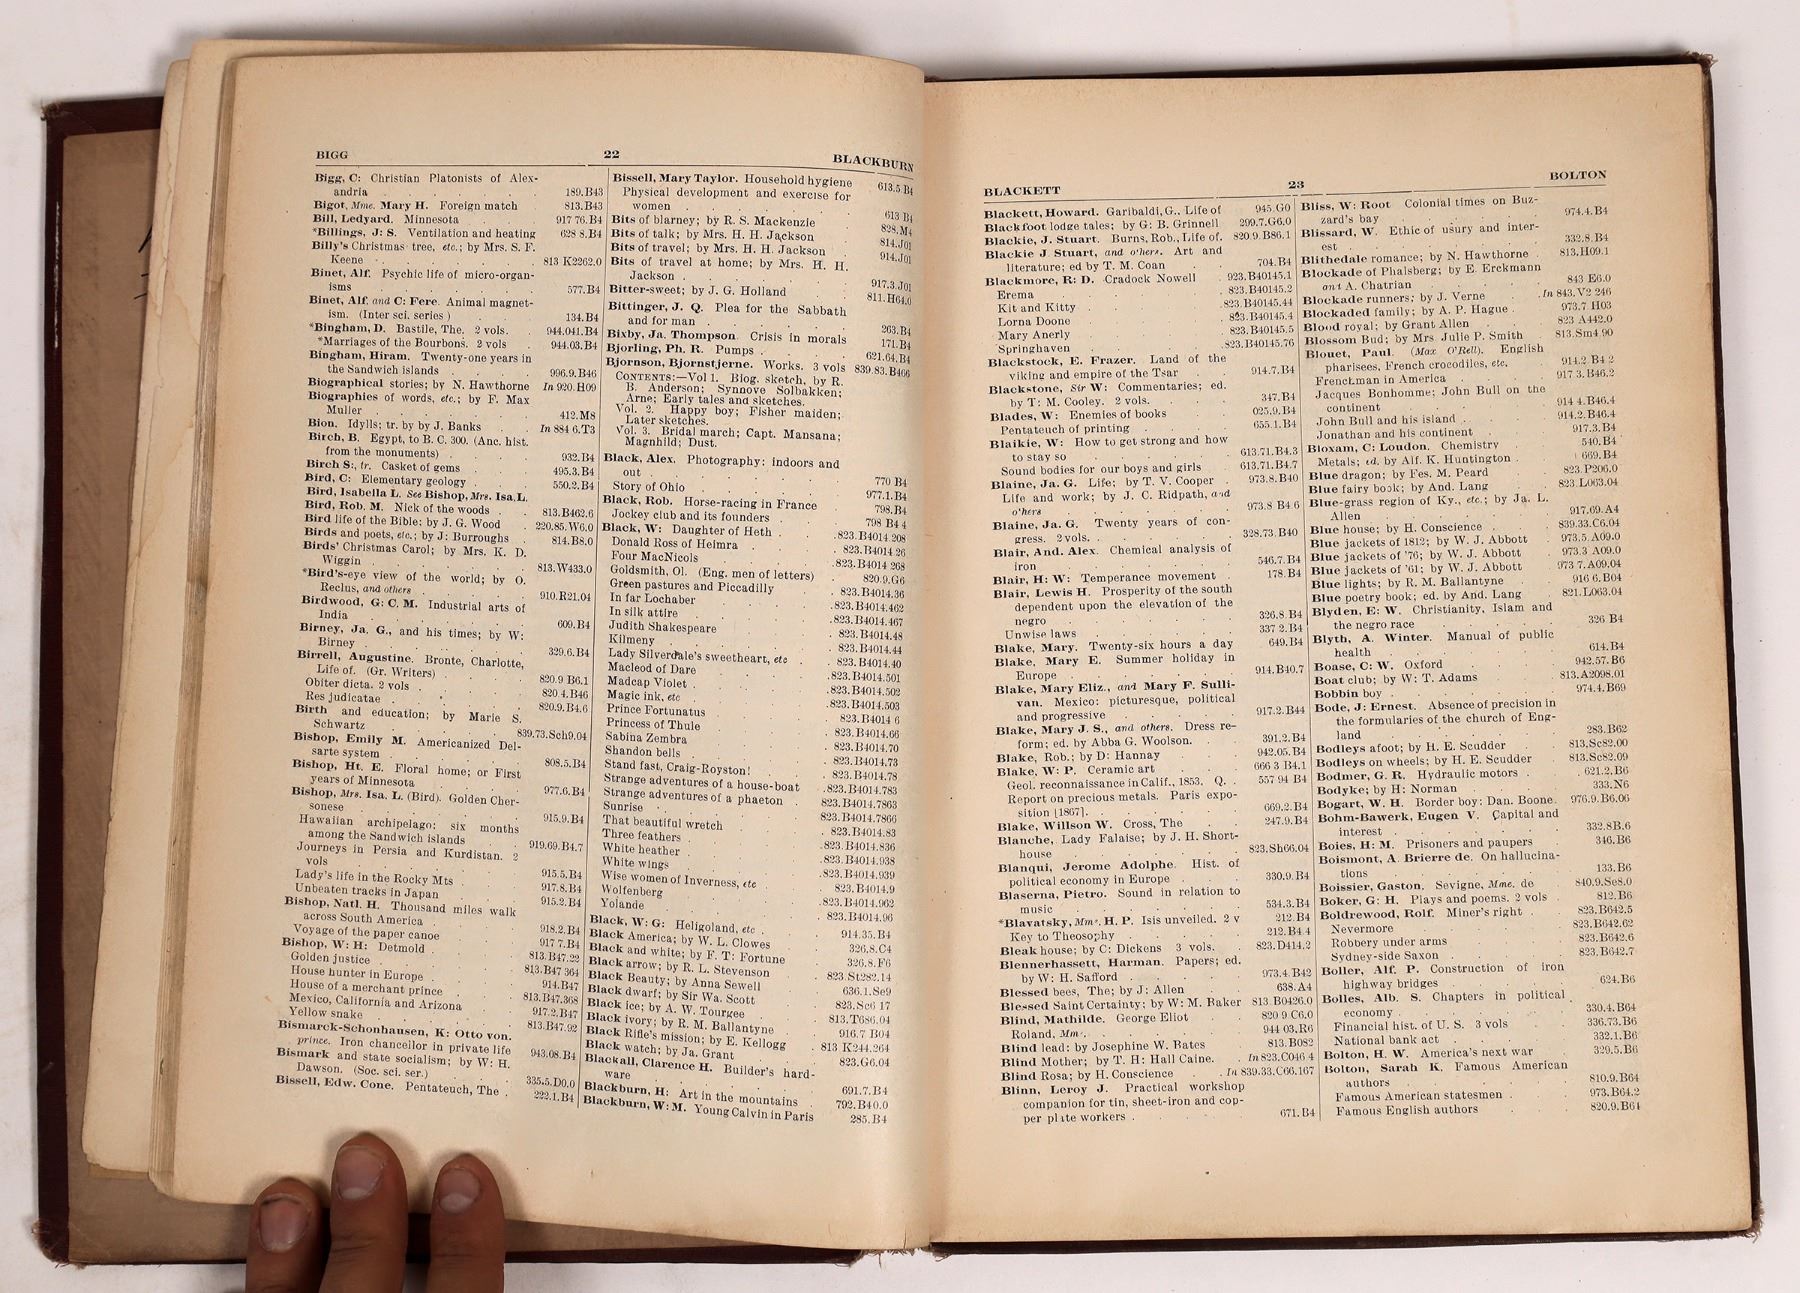 BIGG 22 BLACKBURN
Bigg, C: Christian Platonists of Alex-
andria . . . . . . 189.B43
Bigot, Mme. Mary H. Foreign match . 813.B43
Bill, Ledyard. Minnesota . . . 917 76.B4
*Billings, J: S. Ventilation and heating 628 8.B4
Billy's Christmas tree, etc.; by Mrs. S. F.
Keene . . . . . . 813 K2262.0
Binet, Alf. Psychic life of micro-organ-
isms . . . . . . 577.B4
Binet, Alf. and C: Fere. Animal magnet-
ism. (Inter sci. series) . . . 134.B4
*Bingham, D. Bastile, The. 2 vols. . 944.041.B4
*Marriages of the Bourbons. 2 vols . 944.03.B4
Bingham, Hiram. Twenty-one years in
the Sandwich islands . . . 996.9.B46
Biographical stories; by N. Hawthorne In 920.H09
Biographies of words, etc.; by F. Max
Muller . . . . . . 412.M8
Bion. Idylls; tr. by by J. Banks . . In 884 6.T3
Birch, B. Egypt, to B. C. 300. (Anc. hist.
from the monuments) . . . 932.B4
Birch S:, tr. Casket of gems . . . 495.3.B4
Bird, C: Elementary geology . . . 550.2.B4
Bird, Isabella L. See Bishop, Mrs. Isa. L.
Bird, Rob. M. Nick of the woods . . 813.B462.6
Bird life of the Bible; by J. G. Wood . 220.85.W6.0
Birds and poets, etc.; by J: Burroughs . 814.B8.0
Birds' Christmas Carol; by Mrs. K. D.
Wiggin . . . . . . 813.W433.0
*Bird's-eye view of the world; by O.
Reclus, and others . . . . 910.R21.04
Birdwood, G: C. M. Industrial arts of
India . . . . . . 609.B4
Birney, Ja. G., and his times; by W:
Birney . . . . . . 329.6.B4
Birrell, Augustine. Bronte, Charlotte,
Life of. (Gr. Writers) . . . 820.9 B6.1
Obiter dicta. 2 vols . . . . 820 4.B46
Res judicatae . . . . . 820.9.B4.6
Birth and education; by Marie S.
Schwartz . . . . . 839.73.Sch9.04
Bishop, Emily M. Americanized Del-
sarte system . . . . . 808.5.B4
Bishop, Ht. E. Floral home; or First
years of Minnesota . . . . 977.6.B4
Bishop, Mrs. Isa. L. (Bird). Golden Cher-
sonese . . . . . . 915.9.B4
Hawaiian archipelago; six months
among the Sandwich islands . . 919.69.B4.7
Journeys in Persia and Kurdistan. 2
vols . . . . . . 915.5.B4
Lady's life in the Rocky Mts . . . 917.8.B4
Unbeaten tracks in Japan . . . 915.2.B4
Bishop, Natl. H. Thousand miles walk
across South America . . . 918.2.B4
Voyage of the paper canoe . . . 917 7.B4
Bishop, W: H: Detmold . . . . 813.B47.22
Golden justice . . . . . 813.B47 364
House hunter in Europe . . . 914.B47
House of a merchant prince . . . 813.B47.368
Mexico, California and Arizona . . 917.2.B47
Yellow snake . . . . . 813.B47.92
Bismarck-Schonhausen, K: Otto von.
prince. Iron chancellor in private life 943.08.B4
Bismark and state socialism; by W: H.
Dawson. (Soc. sci. ser.) . . . 335.5.D0.0
Bissell, Edw. Cone. Pentateuch, The . 222.1.B4
Bissell, Mary Taylor. Household hygiene 613.5.B4
Physical development and exercise for
women . . . . . . 613 B4
Bits of blarney; by R. S. Mackenzie . 828.M4
Bits of talk; by Mrs. H. H. Jackson . 814.J01
Bits of travel; by Mrs. H. H. Jackson . 914.J01
Bits of travel at home; by Mrs. H. H.
Jackson . . . . . . 917.3.J01
Bitter-sweet; by J. G. Holland . . 811.H64.0
Bittinger, J. Q. Plea for the Sabbath
and for man . . . . . 263.B4
Bixby, Ja. Thompson. Crisis in morals 171.B4
Bjorling, Ph. R. Pumps . . . . 621.64.B4
Bjornson, Bjornstjerne. Works. 3 vols 839.83.B466
CONTENTS:—Vol 1. Biog. sketch, by R.
B. Anderson; Synnove Solbakken;
Arne; Early tales and sketches.
Vol. 2. Happy boy; Fisher maiden;
Later sketches.
Vol. 3. Bridal march; Capt. Mansana;
Magnhild; Dust.
Black, Alex. Photography: indoors and
out . . . . . . 770 B4
Story of Ohio . . . . . 977.1.B4
Black, Rob. Horse-racing in France . 798.B4
Jockey club and its founders . . 798 B4 4
Black, W: Daughter of Heth . . . 823.B4014.208
Donald Ross of Heimra . . . 823.B4014 26
Four MacNicols . . . . . 823.B4014 268
Goldsmith, Ol. (Eng. men of letters) . 820.9.G6
Green pastures and Piccadilly . . 823.B4014.36
In far Lochaber . . . . . 823.B4014.462
In silk attire . . . . . 823.B4014.467
Judith Shakespeare . . . . 823.B4014.48
Kilmeny . . . . . . 823.B4014.44
Lady Silverdale's sweetheart, etc . 823.B4014.40
Macleod of Dare . . . . . 823.B4014.501
Madcap Violet . . . . . 823.B4014.502
Magic ink, etc . . . . . 823.B4014.503
Prince Fortunatus . . . . 823.B4014 6
Princess of Thule . . . . 823.B4014.66
Sabina Zembra . . . . . 823.B4014.70
Shandon bells . . . . . 823.B4014.73
Stand fast, Craig-Royston! . . . 823.B4014.78
Strange adventures of a house-boat . 823.B4014.783
Strange adventures of a phaeton . . 823.B4014.7863
Sunrise . . . . . . 823.B4014.7866
That beautiful wretch . . . . 823.B4014.83
Three feathers . . . . . 823.B4014.836
White heather . . . . . 823.B4014.938
White wings . . . . . 823.B4014.939
Wise women of Inverness, etc . . 823.B4014.9
Wolfenberg . . . . . 823.B4014.962
Yolande . . . . . . 823.B4014.96
Black, W: G: Heligoland, etc . . . 914.35.B4
Black America; by W. L. Clowes . . 326.8.C4
Black and white; by F. T: Fortune . 326.8.F6
Black arrow; by R. L. Stevenson . . 823 St282.14
Black Beauty; by Anna Sewell . . 636.1.Se9
Black dwarf; by Sir Wa. Scott . . 823.Sc6 17
Black ice; by A. W. Tourgee . . . 813.T686.04
Black ivory; by R. M. Ballantyne . . 916.7 B04
Black Rifle's mission; by E. Kellogg . 813 K244.264
Black watch; by Ja. Grant . . . 823.G6.04
Blackall, Clarence H. Builder's hard-
ware . . . . . . 691.7.B4
Blackburn, H: Art in the mountains . 792.B40.0
Blackburn, W: M. Young Calvin in Paris 285.B4
BLACKETT 23 BOLTON
Blackett, Howard. Garibaldi, G., Life of 945.G0
Blackfoot lodge tales; by G: B. Grinnell 299.7.G6.0
Blackie, J. Stuart. Burns, Rob., Life of. 820.9.B86.1
Blackie J Stuart, and others. Art and
literature; ed by T. M. Coan . . 704.B4
Blackmore, R: D. Cradock Nowell . 923.B40145.1
Erema . . . . . . 823.B40145.2
Kit and Kitty . . . . . 823.B40145.44
Lorna Doone . . . . . 823.B40145.4
Mary Anerly . . . . . 823.B40145.5
Springhaven . . . . . 823.B40145.76
Blackstock, E. Frazer. Land of the
viking and empire of the Tsar . . 914.7.B4
Blackstone, Sir W: Commentaries; ed.
by T: M. Cooley. 2 vols. . . . 347.B4
Blades, W: Enemies of books . . . 025.9.B4
Pentateuch of printing . . . . 655.1.B4
Blaikie, W: How to get strong and how
to stay so . . . . . . 613.71.B4.3
Sound bodies for our boys and girls . 613.71.B4.7
Blaine, Ja. G. Life; by T. V. Cooper . 973.8.B40
Life and work; by J. C. Ridpath, and
others . . . . . . 973.8 B4 6
Blaine, Ja. G. Twenty years of con-
gress. 2 vols. . . . . . 328.73.B40
Blair, And. Alex. Chemical analysis of
iron . . . . . . 546.7.B4
Blair, H: W: Temperance movement . 178.B4
Blair, Lewis H. Prosperity of the south
dependent upon the elevation of the
negro . . . . . . 326.8.B4
Unwise laws . . . . . 337 2.B4
Blake, Mary. Twenty-six hours a day 649.B4
Blake, Mary E. Summer holiday in
Europe . . . . . . 914.B40.7
Blake, Mary Eliz., and Mary F. Sulli-
van. Mexico: picturesque, political
and progressive . . . . . 917.2.B44
Blake, Mary J. S., and others. Dress re-
form; ed. by Abba G. Woolson. . . 391.2.B4
Blake, Rob.; by D: Hannay . . . 942.05.B4
Blake, W: P. Ceramic art . . . 666 3 B4.1
Geol. reconnaissance in Calif., 1853. Q. . 557 94 B4
Report on precious metals. Paris expo-
sition [1867]. . . . . . 669.2.B4
Blake, Willson W. Cross, The . . 247.9.B4
Blanche, Lady Falaise; by J. H. Short-
house . . . . . . 823.Sh66.04
Blanqui, Jerome Adolphe. Hist. of
political economy in Europe . . 330.9.B4
Blaserna, Pietro. Sound in relation to
music . . . . . . 534.3.B4
*Blavatsky, Mme. H. P. Isis unveiled. 2 v 212.B4
Key to Theosophy . . . . 212.B4.4
Bleak house; by C: Dickens 3 vols. . 823.D414.2
Blennerhassett, Harman. Papers; ed.
by W: H. Safford . . . . 973.4.B42
Blessed bees, The; by J: Allen . . 638.A4
Blessed Saint Certainty; by W: M. Baker 813 B0426.0
Blind, Mathilde. George Eliot . . 820 9 C6.0
Roland, Mme. . . . . . 944 03.R6
Blind lead; by Josephine W. Bates . 813.B082
Blind Mother; by T: H: Hall Caine. . In 823.C046 4
Blind Rosa; by H. Conscience . . In 839.33.C66.167
Blinn, Leroy J. Practical workshop
companion for tin, sheet-iron and cop-
per plate workers . . . . 671.B4
Bliss, W: Root Colonial times on Buz-
zard's bay . . . . . 974.4.B4
Blissard, W. Ethic of usury and inter-
est . . . . . . 332.8.B4
Blithedale romance; by N. Hawthorne . 813.H09.1
Blockade of Phalsberg; by E. Erckmann
and A. Chatrian . . . . 843 E6.0
Blockade runners; by J. Verne . . In 843.V2 246
Blockaded family; by A. P. Hague . . 973.7 H03
Blood royal; by Grant Allen . . . 823 A442.0
Blossom Bud; by Mrs Julie P. Smith 813.Sm4.90
Blouet, Paul. (Max O'Rell). English
pharisees, French crocodiles, etc. . 914.2 B4 2
Frenchman in America . . . 917 3.B46.2
Jacques Bonhomme; John Bull on the
continent . . . . . 914 4.B46.4
John Bull and his island . . . 914.2.B46.4
Jonathan and his continent . . 917.3.B4
Bloxam, C: Loudon. Chemistry . . 540.B4
Metals; ed. by Alf. K. Huntington . 669.B4
Blue dragon; by Fes. M. Peard . . 823.P206.0
Blue fairy book; by And. Lang . . 823.L063.04
Blue-grass region of Ky., etc.; by Ja. L.
Allen . . . . . . 917.69.A4
Blue house; by H. Conscience . . 839.33.C6.04
Blue jackets of 1812; by W. J. Abbott . 973.5.A09.0
Blue jackets of '76; by W. J. Abbott 973.3 A09.0
Blue jackets of '61; by W. J. Abbott 973 7.A09.04
Blue lights; by R. M. Ballantyne . 916 6.B04
Blue poetry book; ed. by And. Lang . 821.L063.04
Blyden, E: W. Christianity, Islam and
the negro race . . . . . 326 B4
Blyth, A. Winter. Manual of public
health . . . . . . 614.B4
Boase, C: W. Oxford . . . . 942.57.B6
Boat club; by W: T. Adams . . . 813.A2098.01
Bobbin boy . . . . . . 974.4.B69
Bode, J: Ernest. Absence of precision in
the formularies of the church of Eng-
land . . . . . . 283.B62
Bodleys afoot; by H. E. Scudder . . 813.Sc82.00
Bodleys on wheels; by H. E. Scudder . 813.Sc82.09
Bodmer, G. R. Hydraulic motors . . 621.2.B6
Bodyke; by H: Norman . . . . 333.N6
Bogart, W. H. Border boy: Dan. Boone. 976.9.B6.06
Bohm-Bawerk, Eugen V. Capital and
interest . . . . . . 332.8B.6
Boies, H: M. Prisoners and paupers . 346.B6
Boismont, A. Brierre de. On hallucina-
tions . . . . . . 133.B6
Boissier, Gaston. Sevigne, Mme. de 840.9.Se8.0
Boker, G: H. Plays and poems. 2 vols . 812.B6
Boldrewood, Rolf. Miner's right . . 823.B642.5
Nevermore . . . . . 823.B642.62
Robbery under arms . . . . 823.B642.6
Sydney-side Saxon . . . . 823.B642.7
Boller, Alf. P. Construction of iron
highway bridges . . . . 624.B6
Bolles, Alb. S. Chapters in political
economy . . . . . . 330.4.B64
Financial hist. of U. S. 3 vols . . 336.73.B6
National bank act . . . . 332.1.B6
Bolton, H. W. America's next war . 329.5.B6
Bolton, Sarah K. Famous American
authors . . . . . . 810.9.B64
Famous American statesmen . . 973.B64.2
Famous English authors . . . 820.9.B64